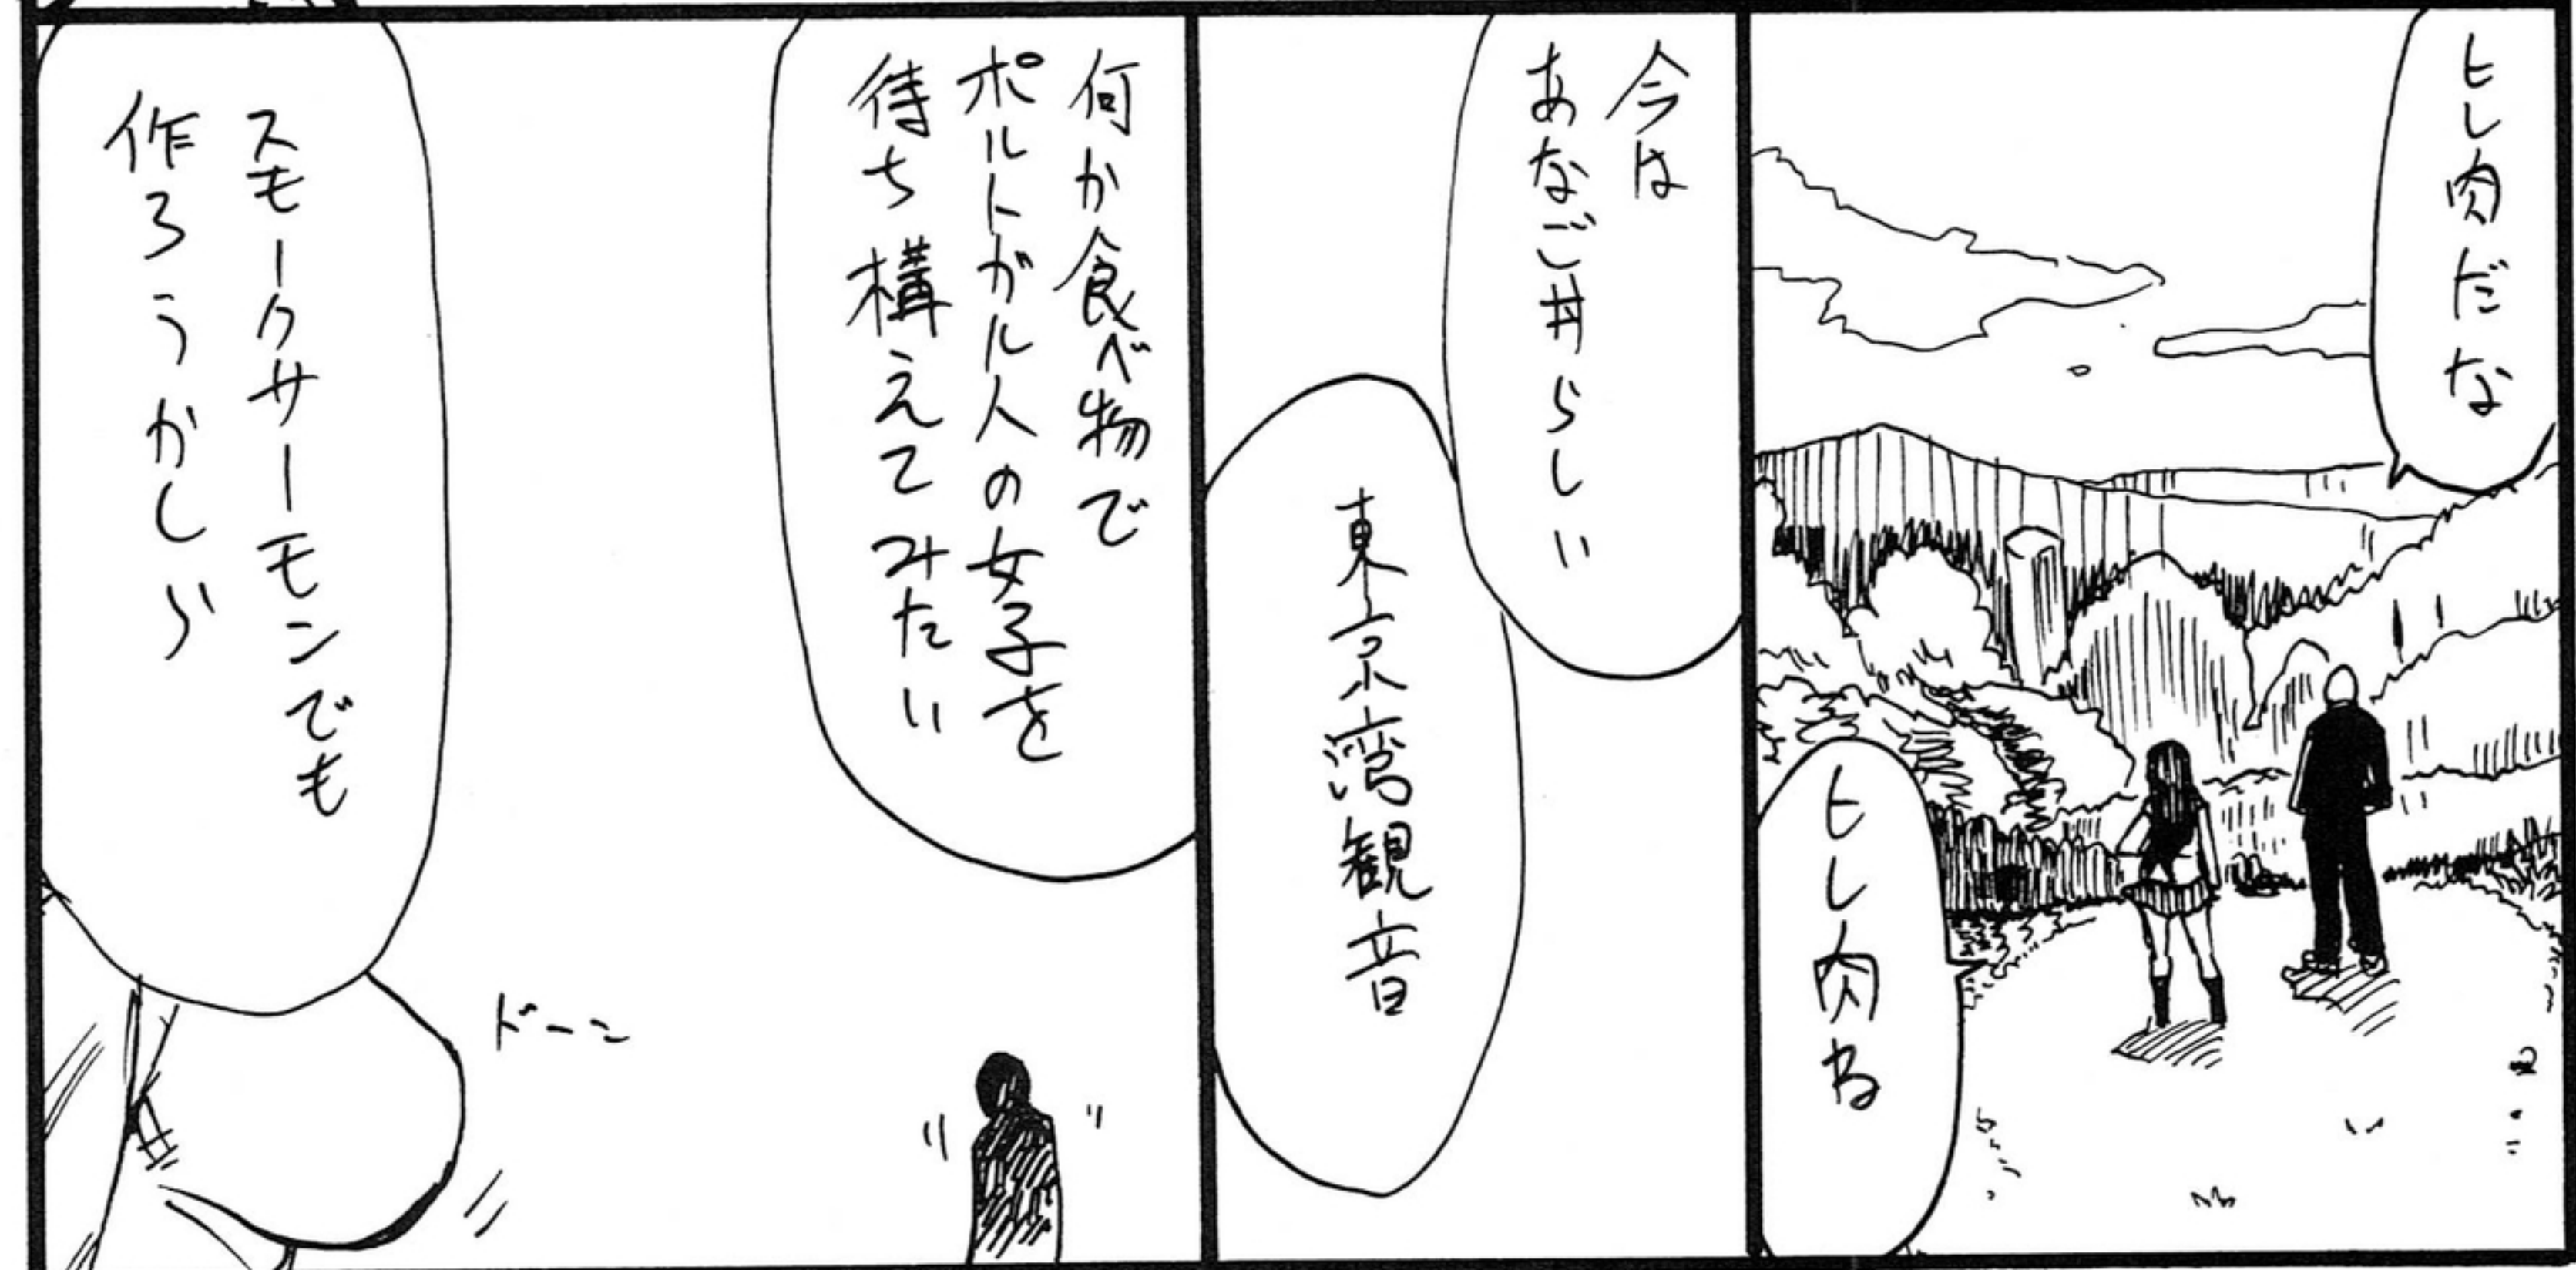 ヒレ肉だな
ヒレ肉ね
今は
あなご丼らしい
東京湾観音
何か食べ物で
ポルトガル人の女子を
待ち構えてみたい
スモークサーモンでも
作ろうかしら
ドーン